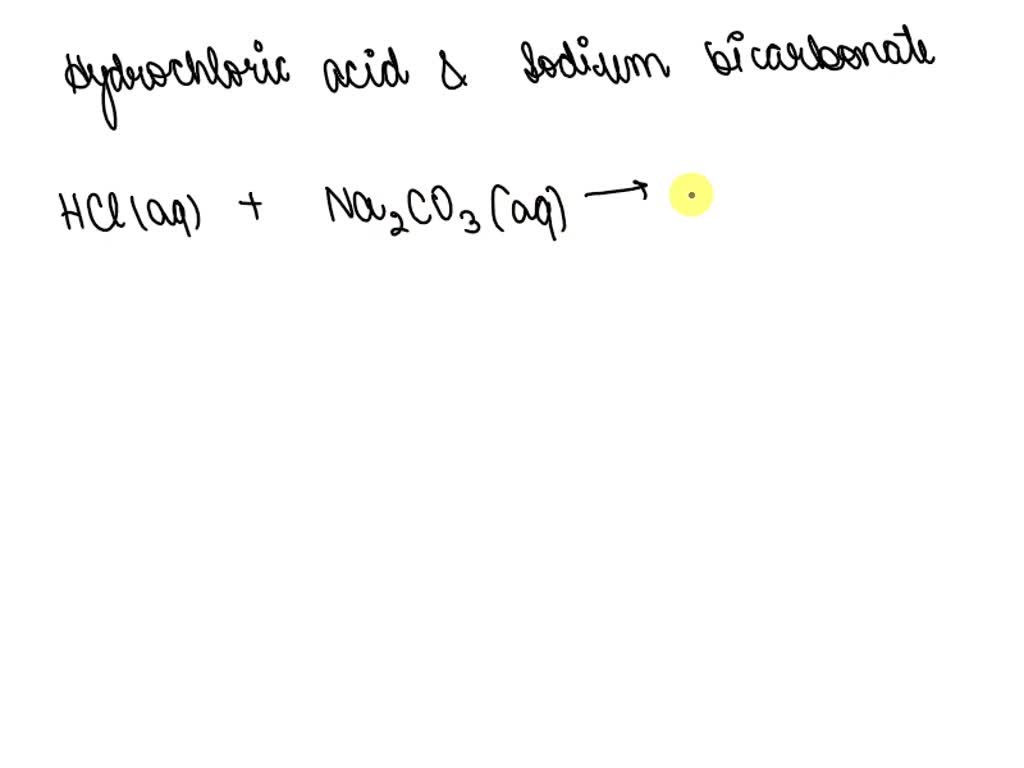 Hydrochloric acid & Sodium bicarbonate
HCl (aq) + Na₂CO₃ (aq) →